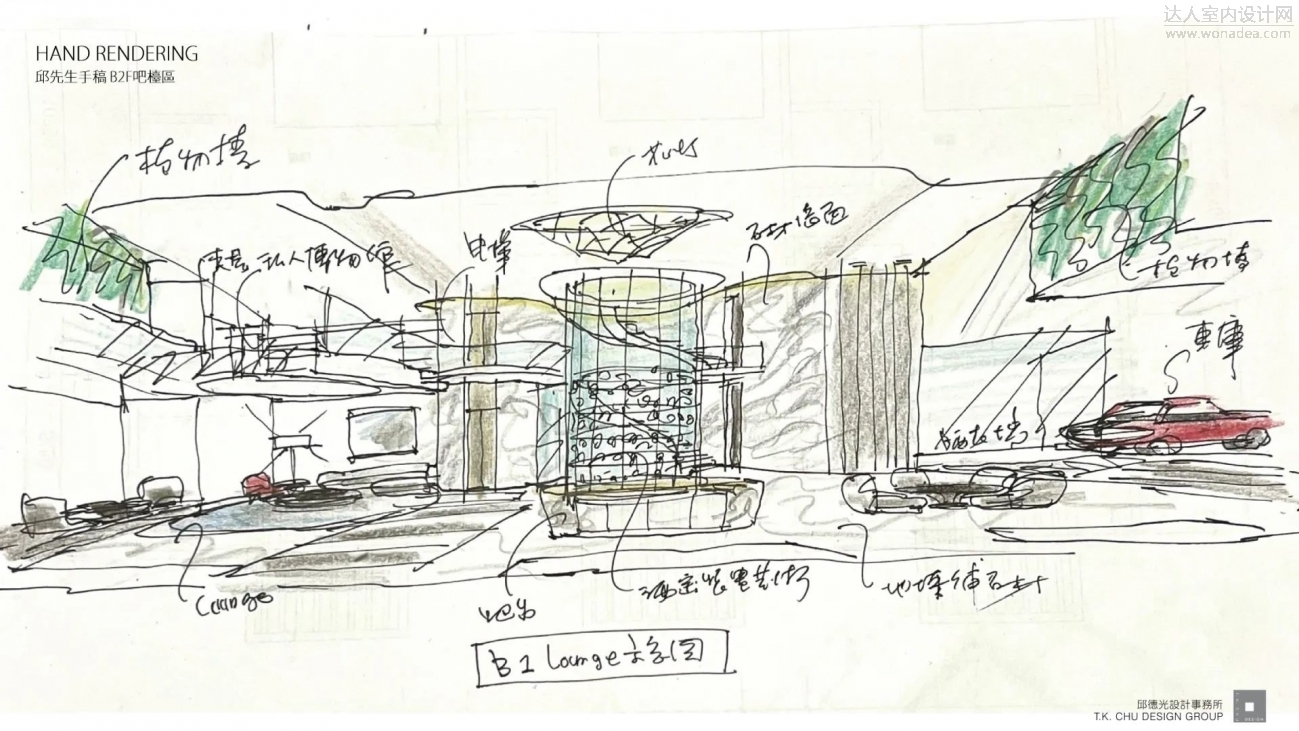 达人室内设计网
www.wonadea.com
HAND RENDERING
邱先生手稿 B2F吧檯區
植物墻
水晶灯
私人博物館
电梯
石材墙面
植物墙
車庫
玻璃
Lounge
吧台
酒窖装置艺术
地坪铺石材
B1 Lounge示意图
邱德光設計事務所
T.K. CHU DESIGN GROUP